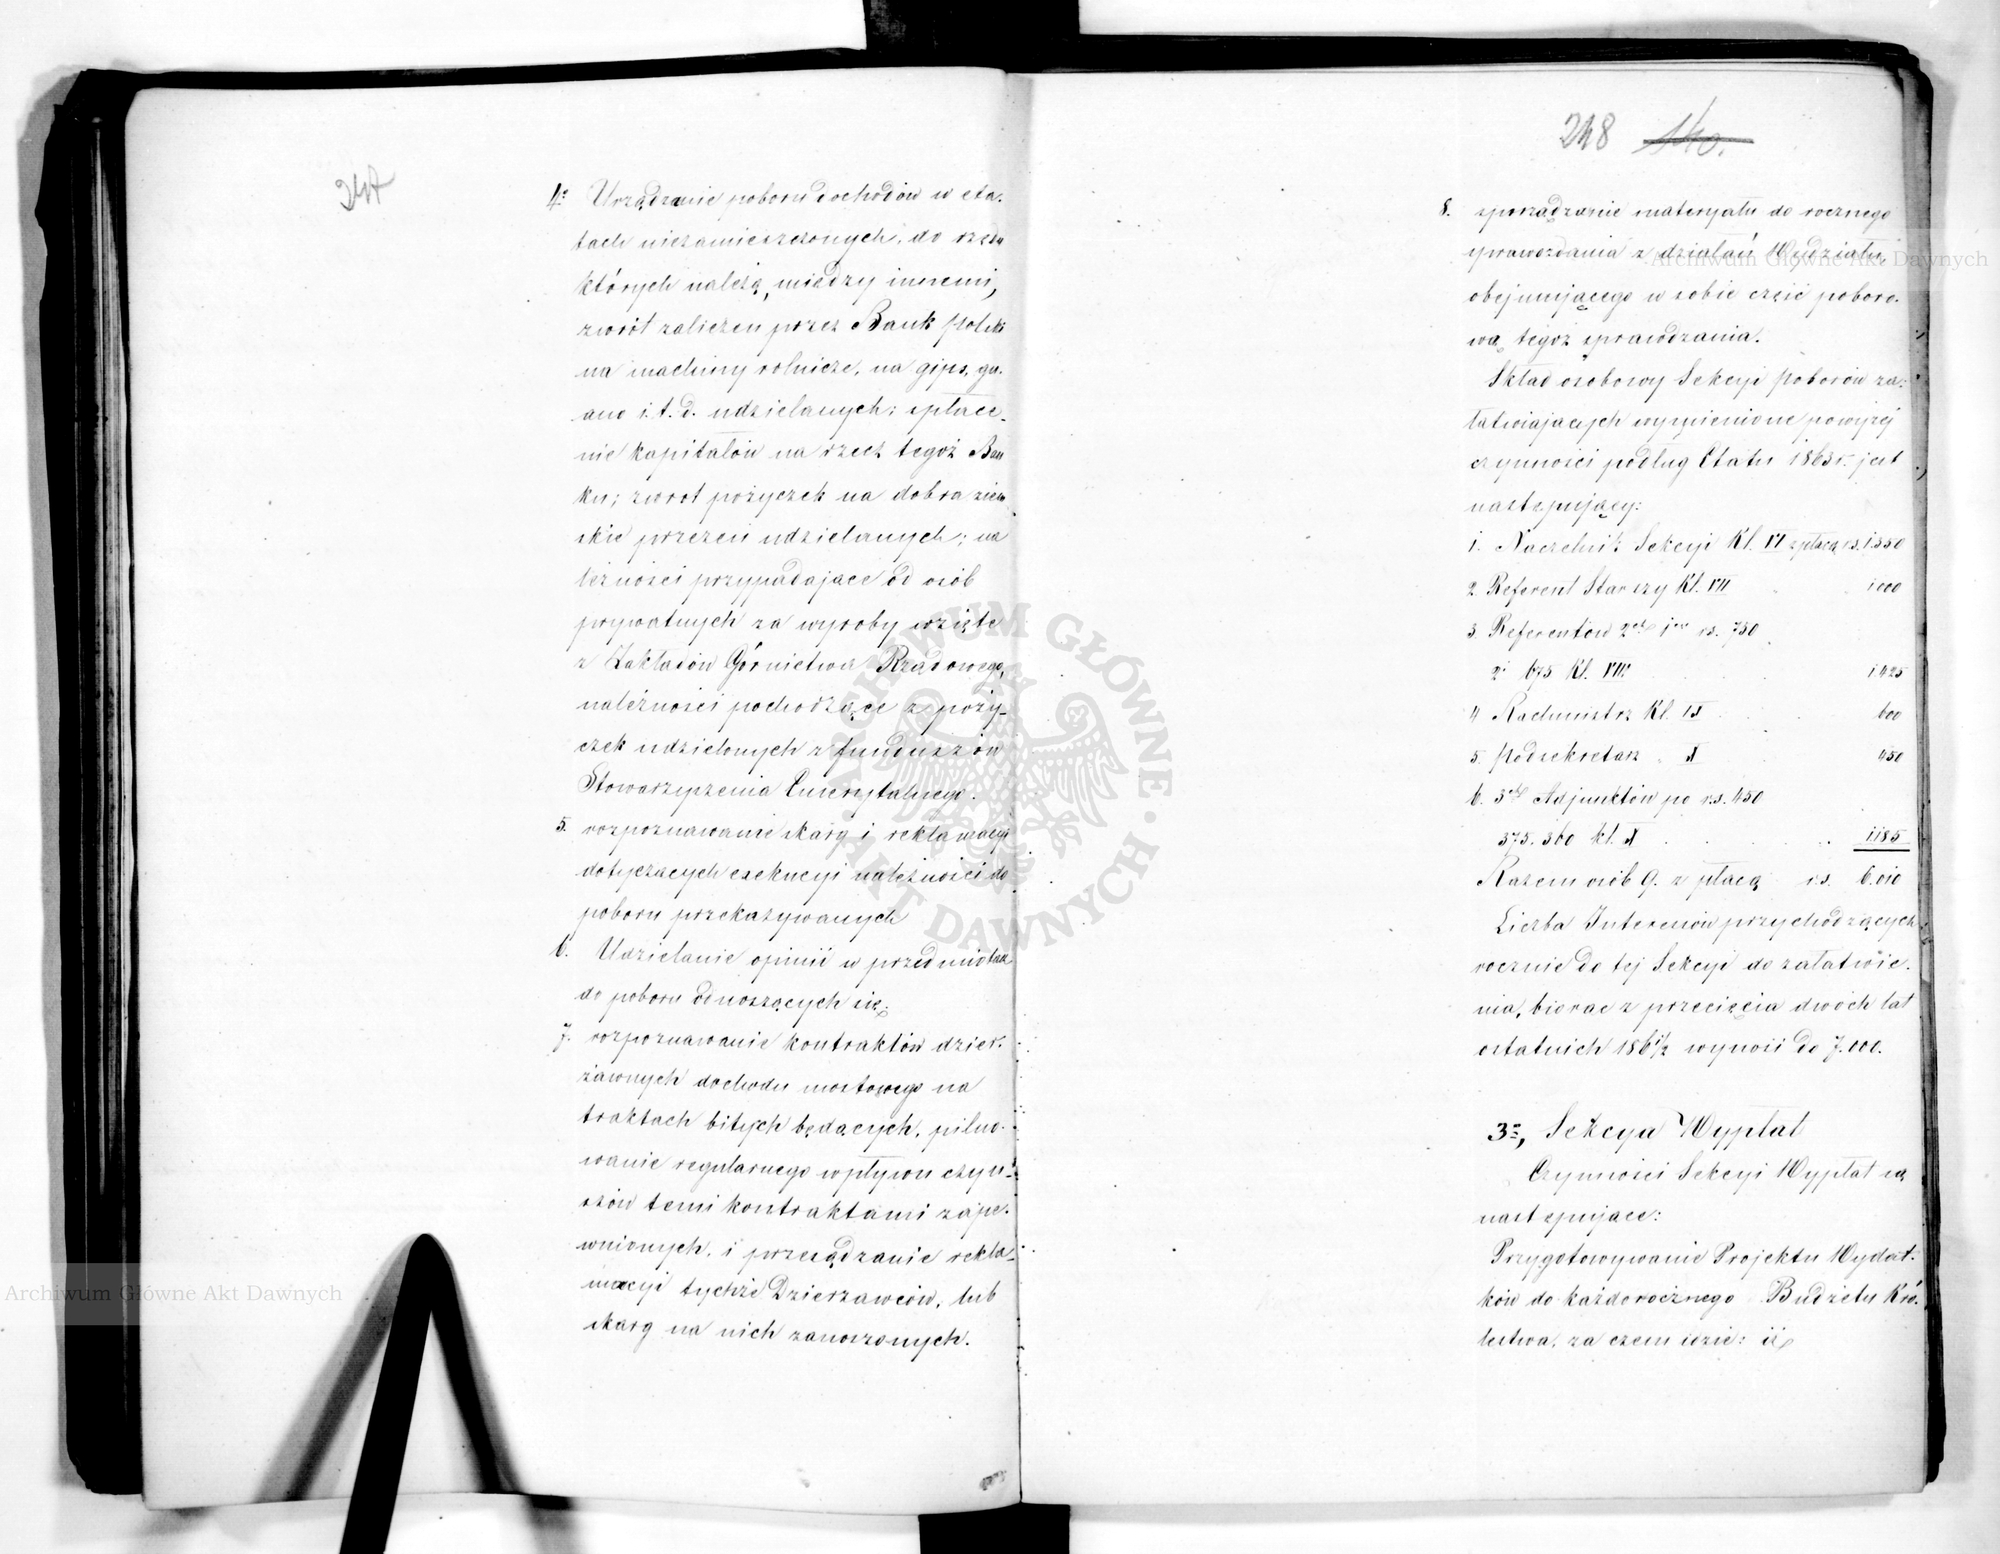 247
4º Urządzanie poboru dochodów w eta-
tach niezamieszczonych, do rzędu
których należą, między innemi,
zwrót zaliczeń przez Bank Polski
na machiny rolnicze, na gips, gu-
ano i.t.d. udzielanych; spłace-
nie kapitałów na rzecz tegoż Ban
ku; zwrot pożyczek na dobra ziem
skie przezeń udzielanych; na
leżności przypadające od osób
prywatnych za wyroby wzięte
z Zakładów Górnictwa Rządowego,
należności pochodzące z poży-
czek udzielonych z funduszów
Stowarzyszenia Emerytalnego.
5. rozpoznawanie skarg i reklamacyi
dotyczących exekucyi należności do
poboru przekazywanych
6. Udzielanie opinii w przedmiotach
do poboru odnoszących się;
7. rozpoznawanie kontraktów dzier-
żawnych dochodu mostowego na
traktach bitych będących, pilno-
wanie regularnego wpływu czyn-
szów temi kontraktami zape-
wnionych, i przesądzanie rekla-
macyi tychże Dzierżawców, lub
skarg na nich zanoszonych.
248 140.
8. sporządzanie materyału do rocznego
sprawozdania z działań Wydziału,
obejmującego w sobie część poboro-
wą tegoż sprawdzania.
Skład osobowy Sekcyi Poborów za-
łatwiających wymienione powyżej
czynności podług Etatu 1863 r. jest
następujący:
1. Naczelnik Sekcyi Kl. VI z płacą rs. 1.350
2 Referent Starszy Kl. VII 1000
3. Referentów 2ch 1en rs. 750
2i 675 Kl. VIII 1.425
4 Rachmistrz Kl. IX 600
5. Podsekretarz X 450
6. 3ch Adjunktów po rs. 450
375. 360 kl. X 1185
Razem osób 9. z płacą rs. 6.010
Liczba Interesów przychodzących
rocznie do tej Sekcyi do załatwie-
nia, biorąc z przecięcia dwóch lat
ostatnich 186½ wynosi do 7.000.
3º, Sekcya Wypłat
Czynności Sekcyi Wypłat są
następujące:
Przygotowywanie Projektu Wydat-
ków do każdorocznego Budżetu Kró-
lestwa, za czem idzie: iż
Archiwum Główne Akt Dawnych
Archiwum Główne Akt Dawnych
ARCHIWUM GŁÓWNE AKT DAWNYCH